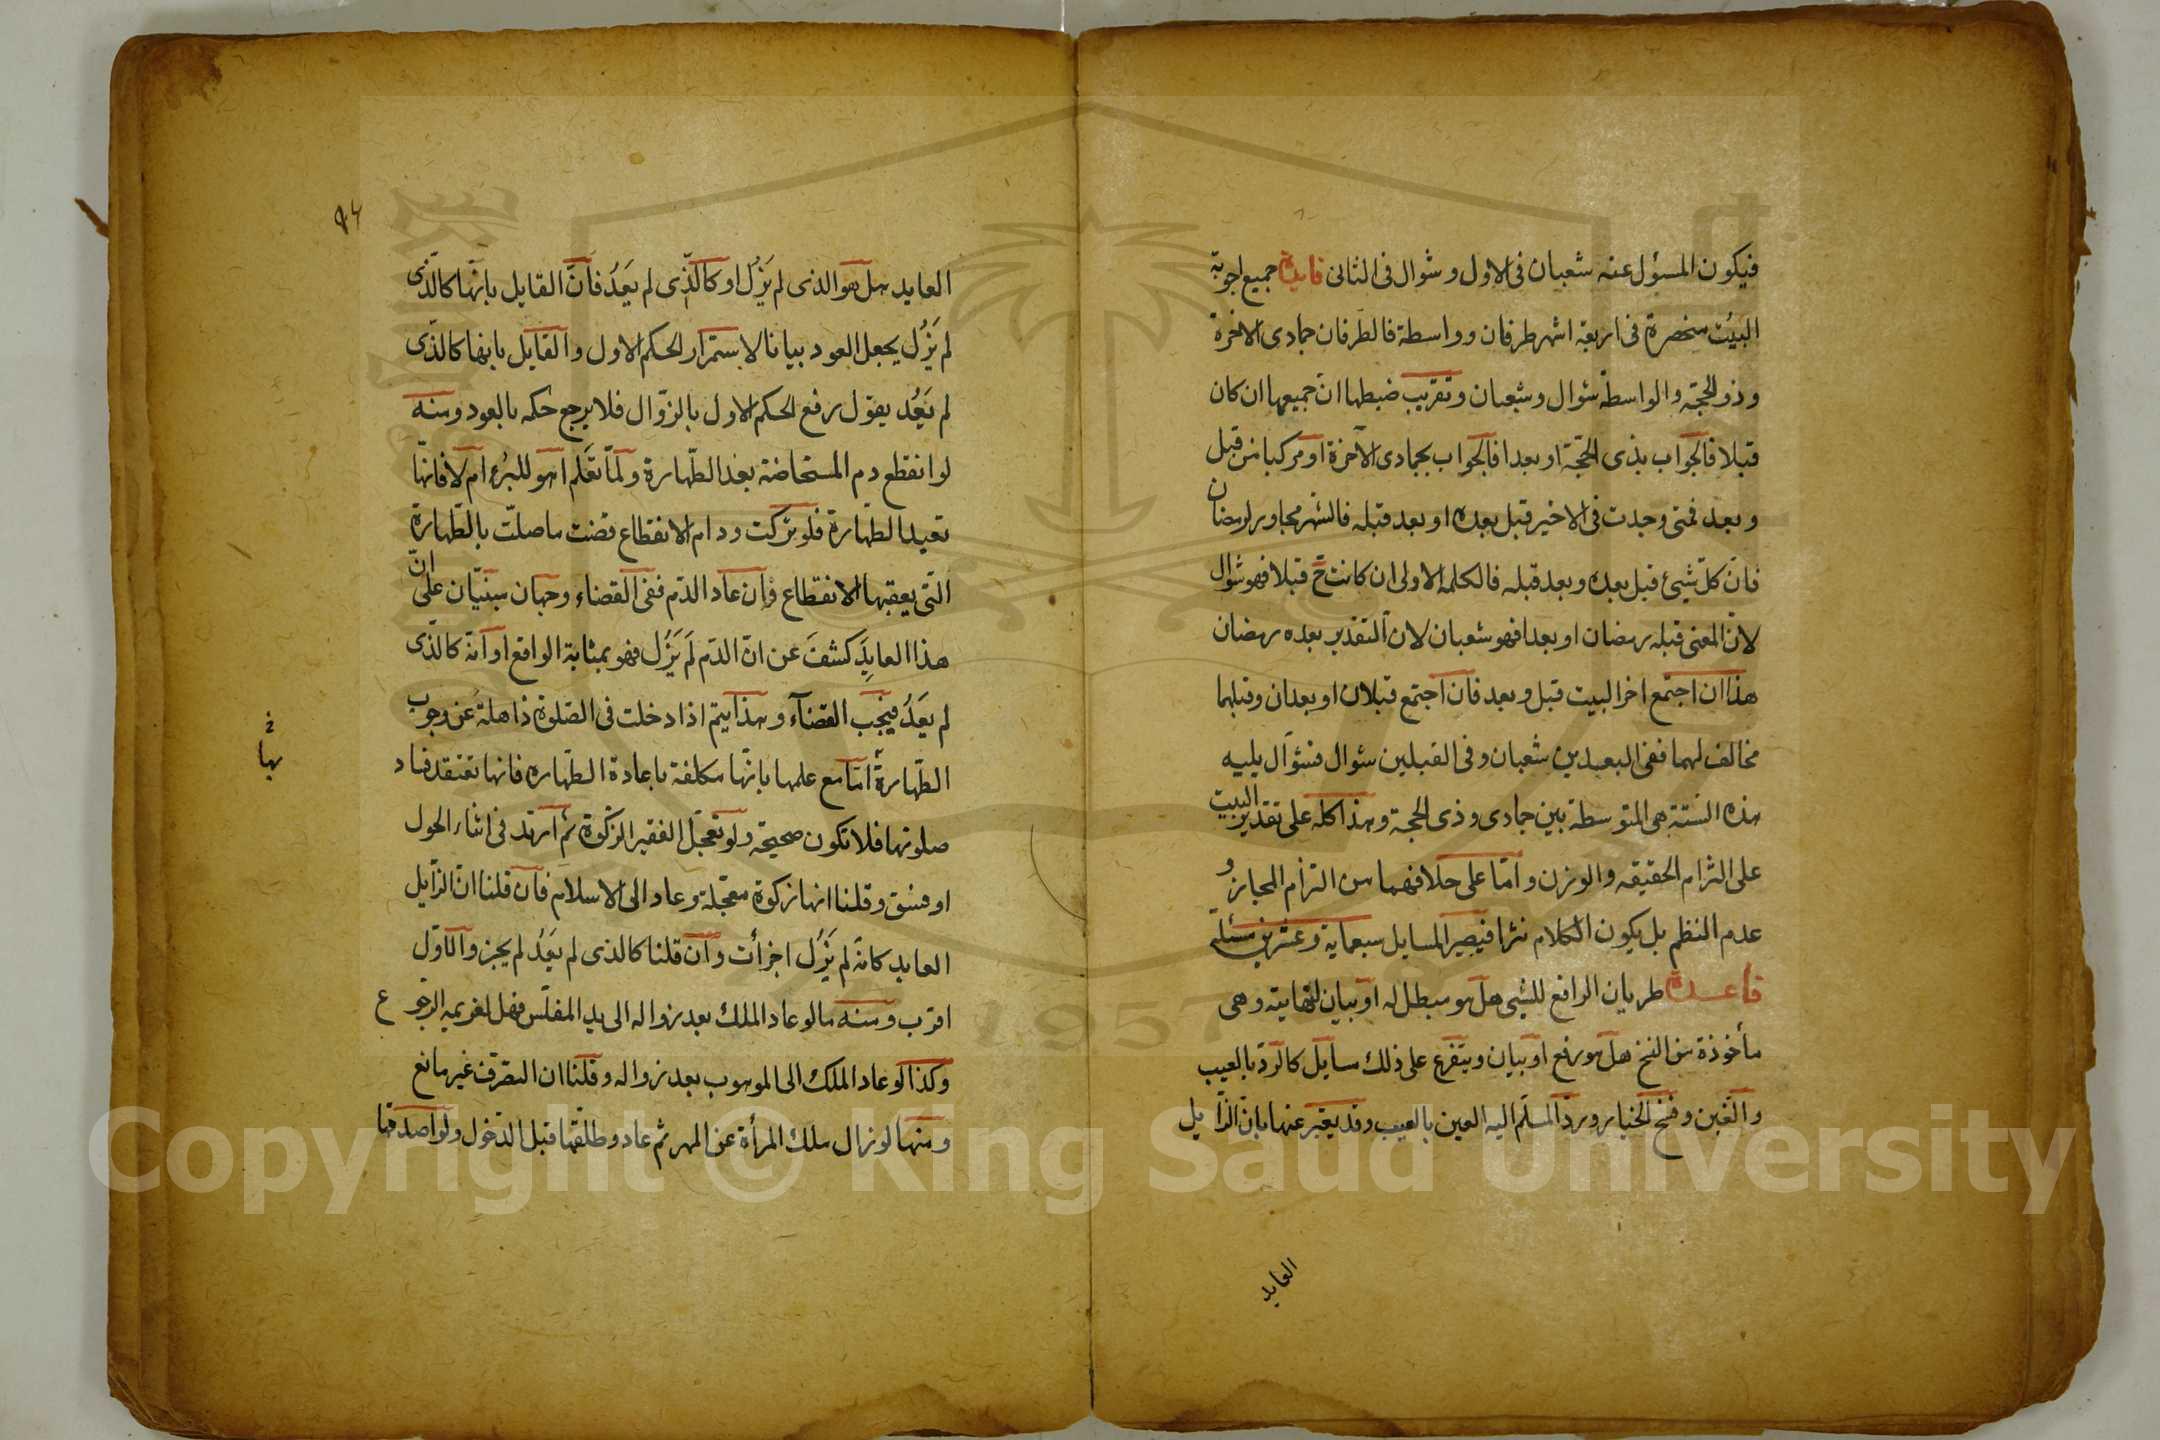 فيكون المسؤل عنه شعبان فى الاول و شوال فى الثانى فايدة جميع اجوبة
البيت منحصرة فى اربعة اشهر طرفان و واسطة فالطرفان جمادى الاخرة
و ذو الحجة و الواسطة شوال و شعبان و تقريب ضبطها ان جميعها ان كان
قبلا فالجواب بذى الحجة او بعدا فالجواب بجمادى الآخرة او مركبا من قبل
و بعد فمتى وجدت فى الاخير قبل بعده او بعد قبله فالشهر مجاور لرمضان
فانّ كلّ شيئ قبل بعده و بعد قبله فالكلمة الاولى ان كانت ح قبلا فهو شوال
لانّ المعنى قبله رمضان او بعدا فهو شعبان لان التقدير بعده رمضان
هذا ان اجتمع اخر البيت قبل و بعد فان اجتمع قبلان او بعدان و قبلهما
مخالف لهما ففى البعدين شعبان و فى القبلين شوال فشوال يليه
هذه الستة هى المتوسطة بين جمادى و ذى الحجة و هذا كله على تقدير البيت
على التزام الحقيقه و الوزن و امّا على خلافهما من التزام المجاز و
عدم النظم بل يكون الكلام نثرا فيصير المسايل سبعماية و عشرين مسئلة
قاعدة طريان الرافع للشيئ هل هو مبطل له او بيان لنهايته و هى
مأخوذة من النسخ هل هو رفع او بيان و يتفرع على ذلك مسايل كالرد بالعيب
و الغبن و فسخ الخيار و ردّ المسلّم اليه العين بالعيب و قد يعبّر عنها بانّ الزّايل
العايد
٩٤
العايد هل هو الذى لم يَزُل او كالّذى لم يَعُد فانّ القايل بانّها كالّذى
لم يَزُل يجعل العود بيانا لاستمرار الحكم الاول و القايل بانها كالذّى
لم يَعُد يقول رفع الحكم الاول بالزّوال فلا يرجع حكمه بالعود و منه
لو انقطع دم المستحاضة بعد الطّهارة و لمّا تعلم اهو للبرء ام لا فانّها
تعيد الطهارة فلو تركت و دام الانقطاع قضت ما صلّت بالطّهارة
التى يعقبها الانقطاع و ان عاد الدّم ففى القضاء وجهان مبنيّان على انّ
هذا العايد كشف عن انّ الدّم لَم يَزُل فهو بمثابة الواقع او انّه كالذّى
لم يَعُد فيجب القضآء و هذا يتم اذا دخلت فى الصّلوة ذاهلة عن وجوب
الطّهارة امّا مع علمها بانّها مكلفة باعادة الطهاره فانها تعتقد فساد
صلوتها فلا تكون صحيحة و لو تعجّل الفقير الزكوة ثم ارتد فى اثناء الحول
او فسق و قلنا انها زكوة معجّلة و عاد الى الاسلام فان قلنا انّ الزايل
العايد كانّه لم يَزُل اجزأت و ان قلنا كالذى لم يَعُد لم يجز و الاوّل
اقرب و منه ما لو عاد الملك بعد زواله الى يد المفلّس فهل لغريمه الرجوع
و كذا لو عاد الملك الى الموهوب بعد زواله و قلنا ان التصرّف غير مانع
و منها لو زال ملك المرأة عن المهر ثم عاد و طلقها قبل الدّخول و لو اصدقها
Copyright © King Saud University
1957